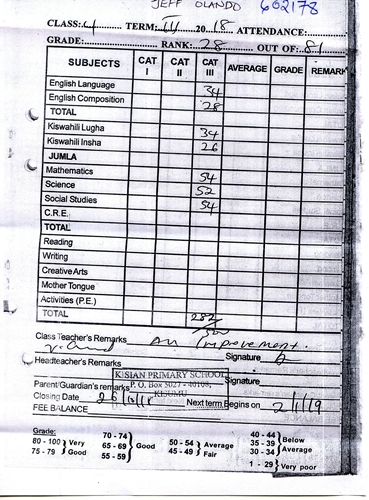 JEFF OLANDO 602178
CLASS: 4 TERM: III 2018 ATTENDANCE:
GRADE: RANK: 28 OUT OF: 81
SUBJECTS CAT I CAT II CAT III AVERAGE GRADE REMARK
English Language 34
English Composition 28
TOTAL
Kiswahili Lugha 34
Kiswahili Insha 26
JUMLA
Mathematics 54
Science 52
Social Studies 54
C.R.E.
TOTAL
Reading
Writing
Creative Arts
Mother Tongue
Activities (P.E.)
TOTAL 282/500
Class Teacher's Remarks An Improvement.
Signature
Headteacher's Remarks
KISIAN PRIMARY SCHOOL
Parent/Guardian's remarks P. O. Box 5027 - 40108, Signature
KISUMU
Closing Date 26/10/18 Next term Begins on 2/1/19
FEE BALANCE
Grade:
80 - 100 } Very
75 - 79 } Good
70 - 74
65 - 69 } Good
55 - 59
50 - 54 } Average
45 - 49 } Fair
40 - 44
35 - 39 } Below
30 - 34 } Average
1 - 29 } Very poor